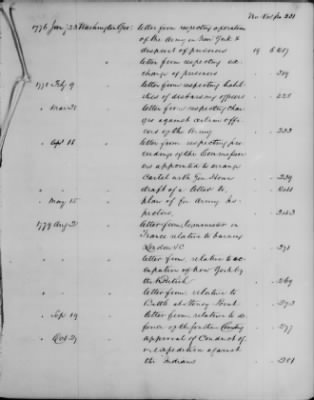 No. Vol. Pa 231
1776 Jan'y 23 Washington Geo: letter from respecting operation
of the Army in New York &
disposit of prisoners 19 6 207
" letter from respecting ex-
change of prisoners " 209
1778 Feb'y 9 letter from respecting liabil-
ities of disbursing officers " 225
" Mar 21 letter from respecting char-
ges against certain offi-
cers of the Army " 233
" Apl 18 letter from respecting pro-
ceedings of the Commission-
ers appointed to arrange
Cartel with Gen Howe " 239
" draft of a letter to,
" May 15 plan of for Army Ins-
pectors. " 243
1779 Aug 2 letter from
France relative to
London &c " 271
" letter from relative to oc-
cupation of New York by
the British " 269
" letter from relative to
Battle at Stoney Point " 273
" Sep 19 letter from relative to de-
fence of the " 277
" Oct 21 approval of Conduct of
expedition against
the Indians " 281